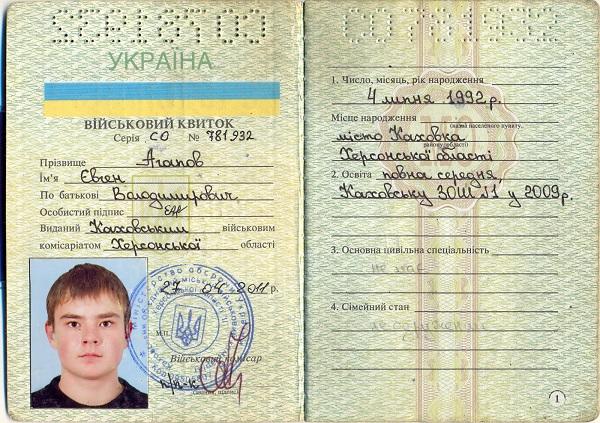 СО 781932
УКРАЇНА
ВІЙСЬКОВИЙ КВИТОК
Серія СО № 781932
Прізвище Агапов
Ім'я Євген
По батькові Володимирович
Особистий підпис
Виданий Каховським військовим
комісаріатом Херсонської області
27 04 2011 р.
М.П.
Військовий комісар
п/п-к
СО 781932
1. Число, місяць, рік народження
4 липня 1992 р.
Місце народження
(назва населеного пункту,
місто Каховка
району, області)
Херсонської області
2. Освіта повна середня
Каховську ЗОШ №1 у 2009 р.
3. Основна цивільна спеціальність
не має
4. Сімейний стан
не одружений
1